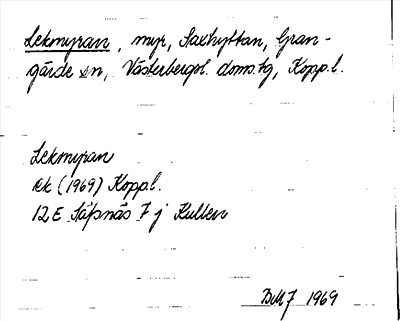 Lekmyran, myr, Saxhyttan, Gran-
gärde sn, Västerbergsl. doms.hg, Kopp.l.
Lekmyran
ek (1969) Kopp.l.
12E Säfsnäs 7 j Kullen
BMJ 1969